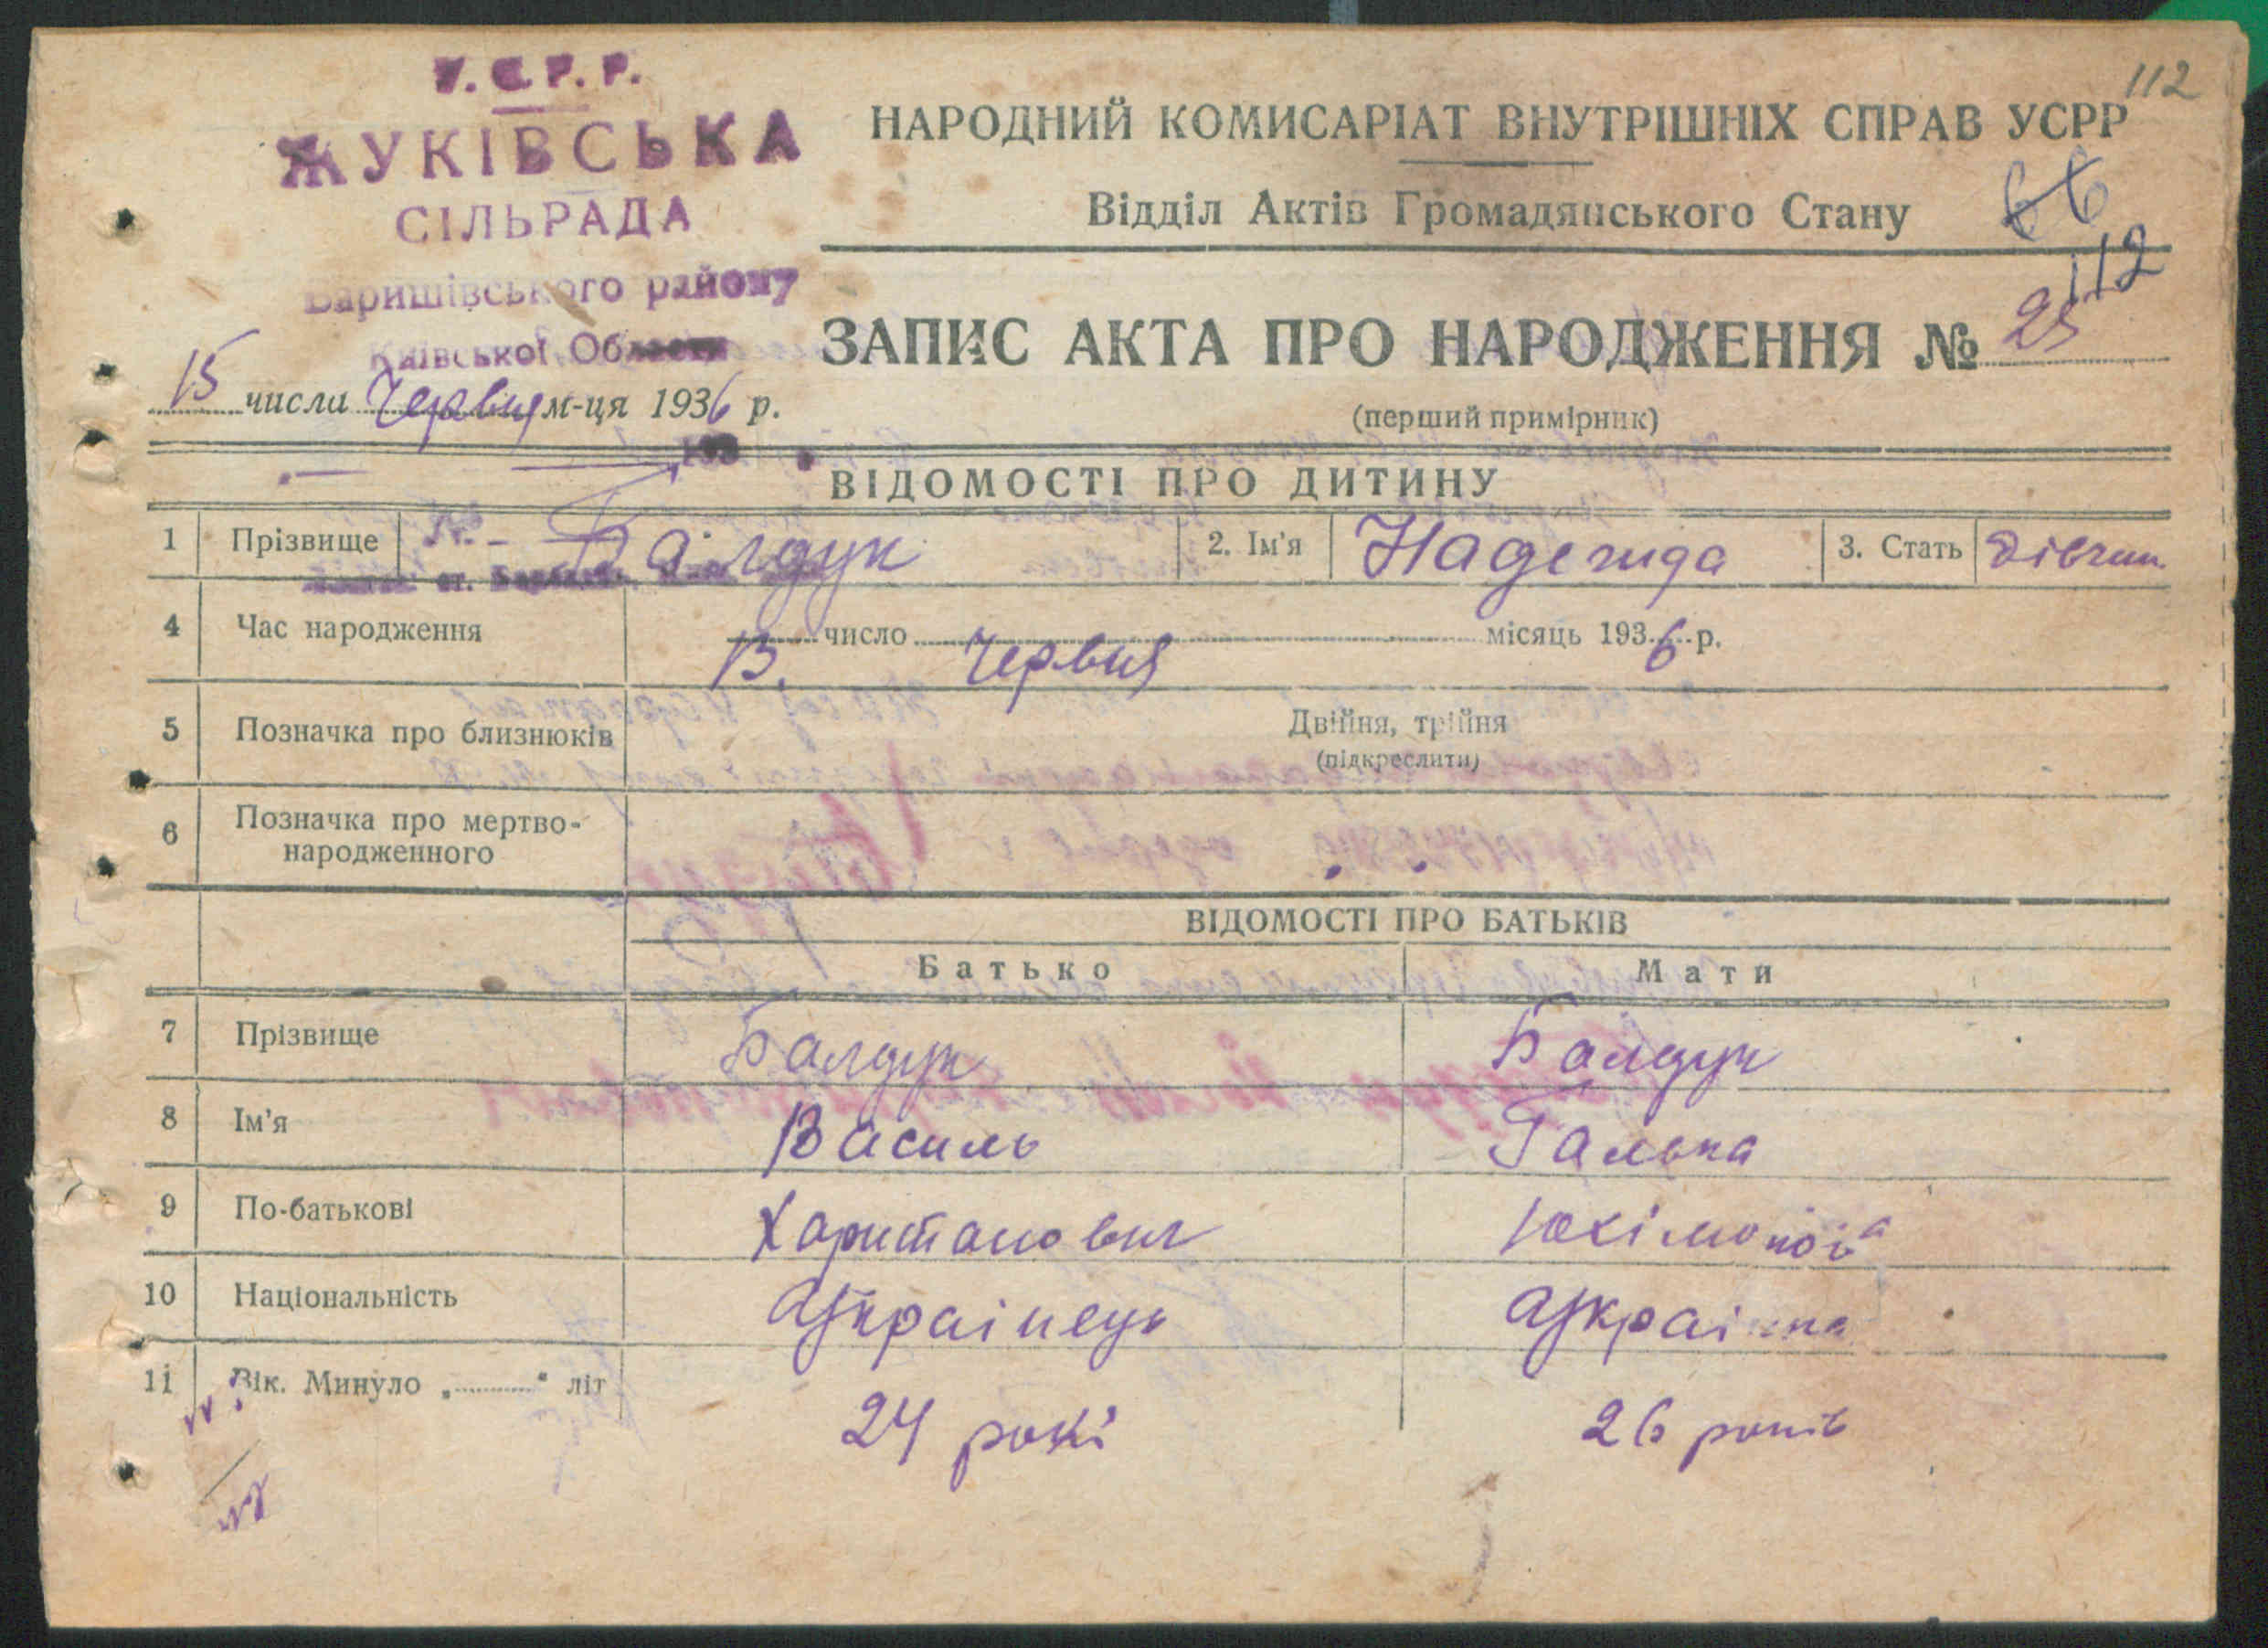 112
У.С.Р.Р.
ЖУКІВСЬКА
СІЛЬРАДА
Баришівського району
Київської Области
НАРОДНИЙ КОМИСАРІАТ ВНУТРІШНІХ СПРАВ УСРР
Відділ Актів Громадянського Стану
66
112
ЗАПИС АКТА ПРО НАРОДЖЕННЯ № 25
(перший примірник)
15 числа Червня м-ця 1936 р.
193
ВІДОМОСТІ ПРО ДИТИНУ
1 Прізвище Балдук 2. Ім'я Надежда 3. Стать дівчин.
№
ст.
4 Час народження 13. число Червня місяць 1936 р.
5 Позначка про близнюків Двійня, трійня
(підкреслити)
6 Позначка про мертво-
народженного
ВІДОМОСТІ ПРО БАТЬКІВ
Батько Мати
7 Прізвище Балдук Балдук
8 Ім'я Василь Галька
9 По-батькові Хаританович Юхімовна
10 Національність Українець Українка
11 Вік. Минуло „ " літ 24 рокі 26 років